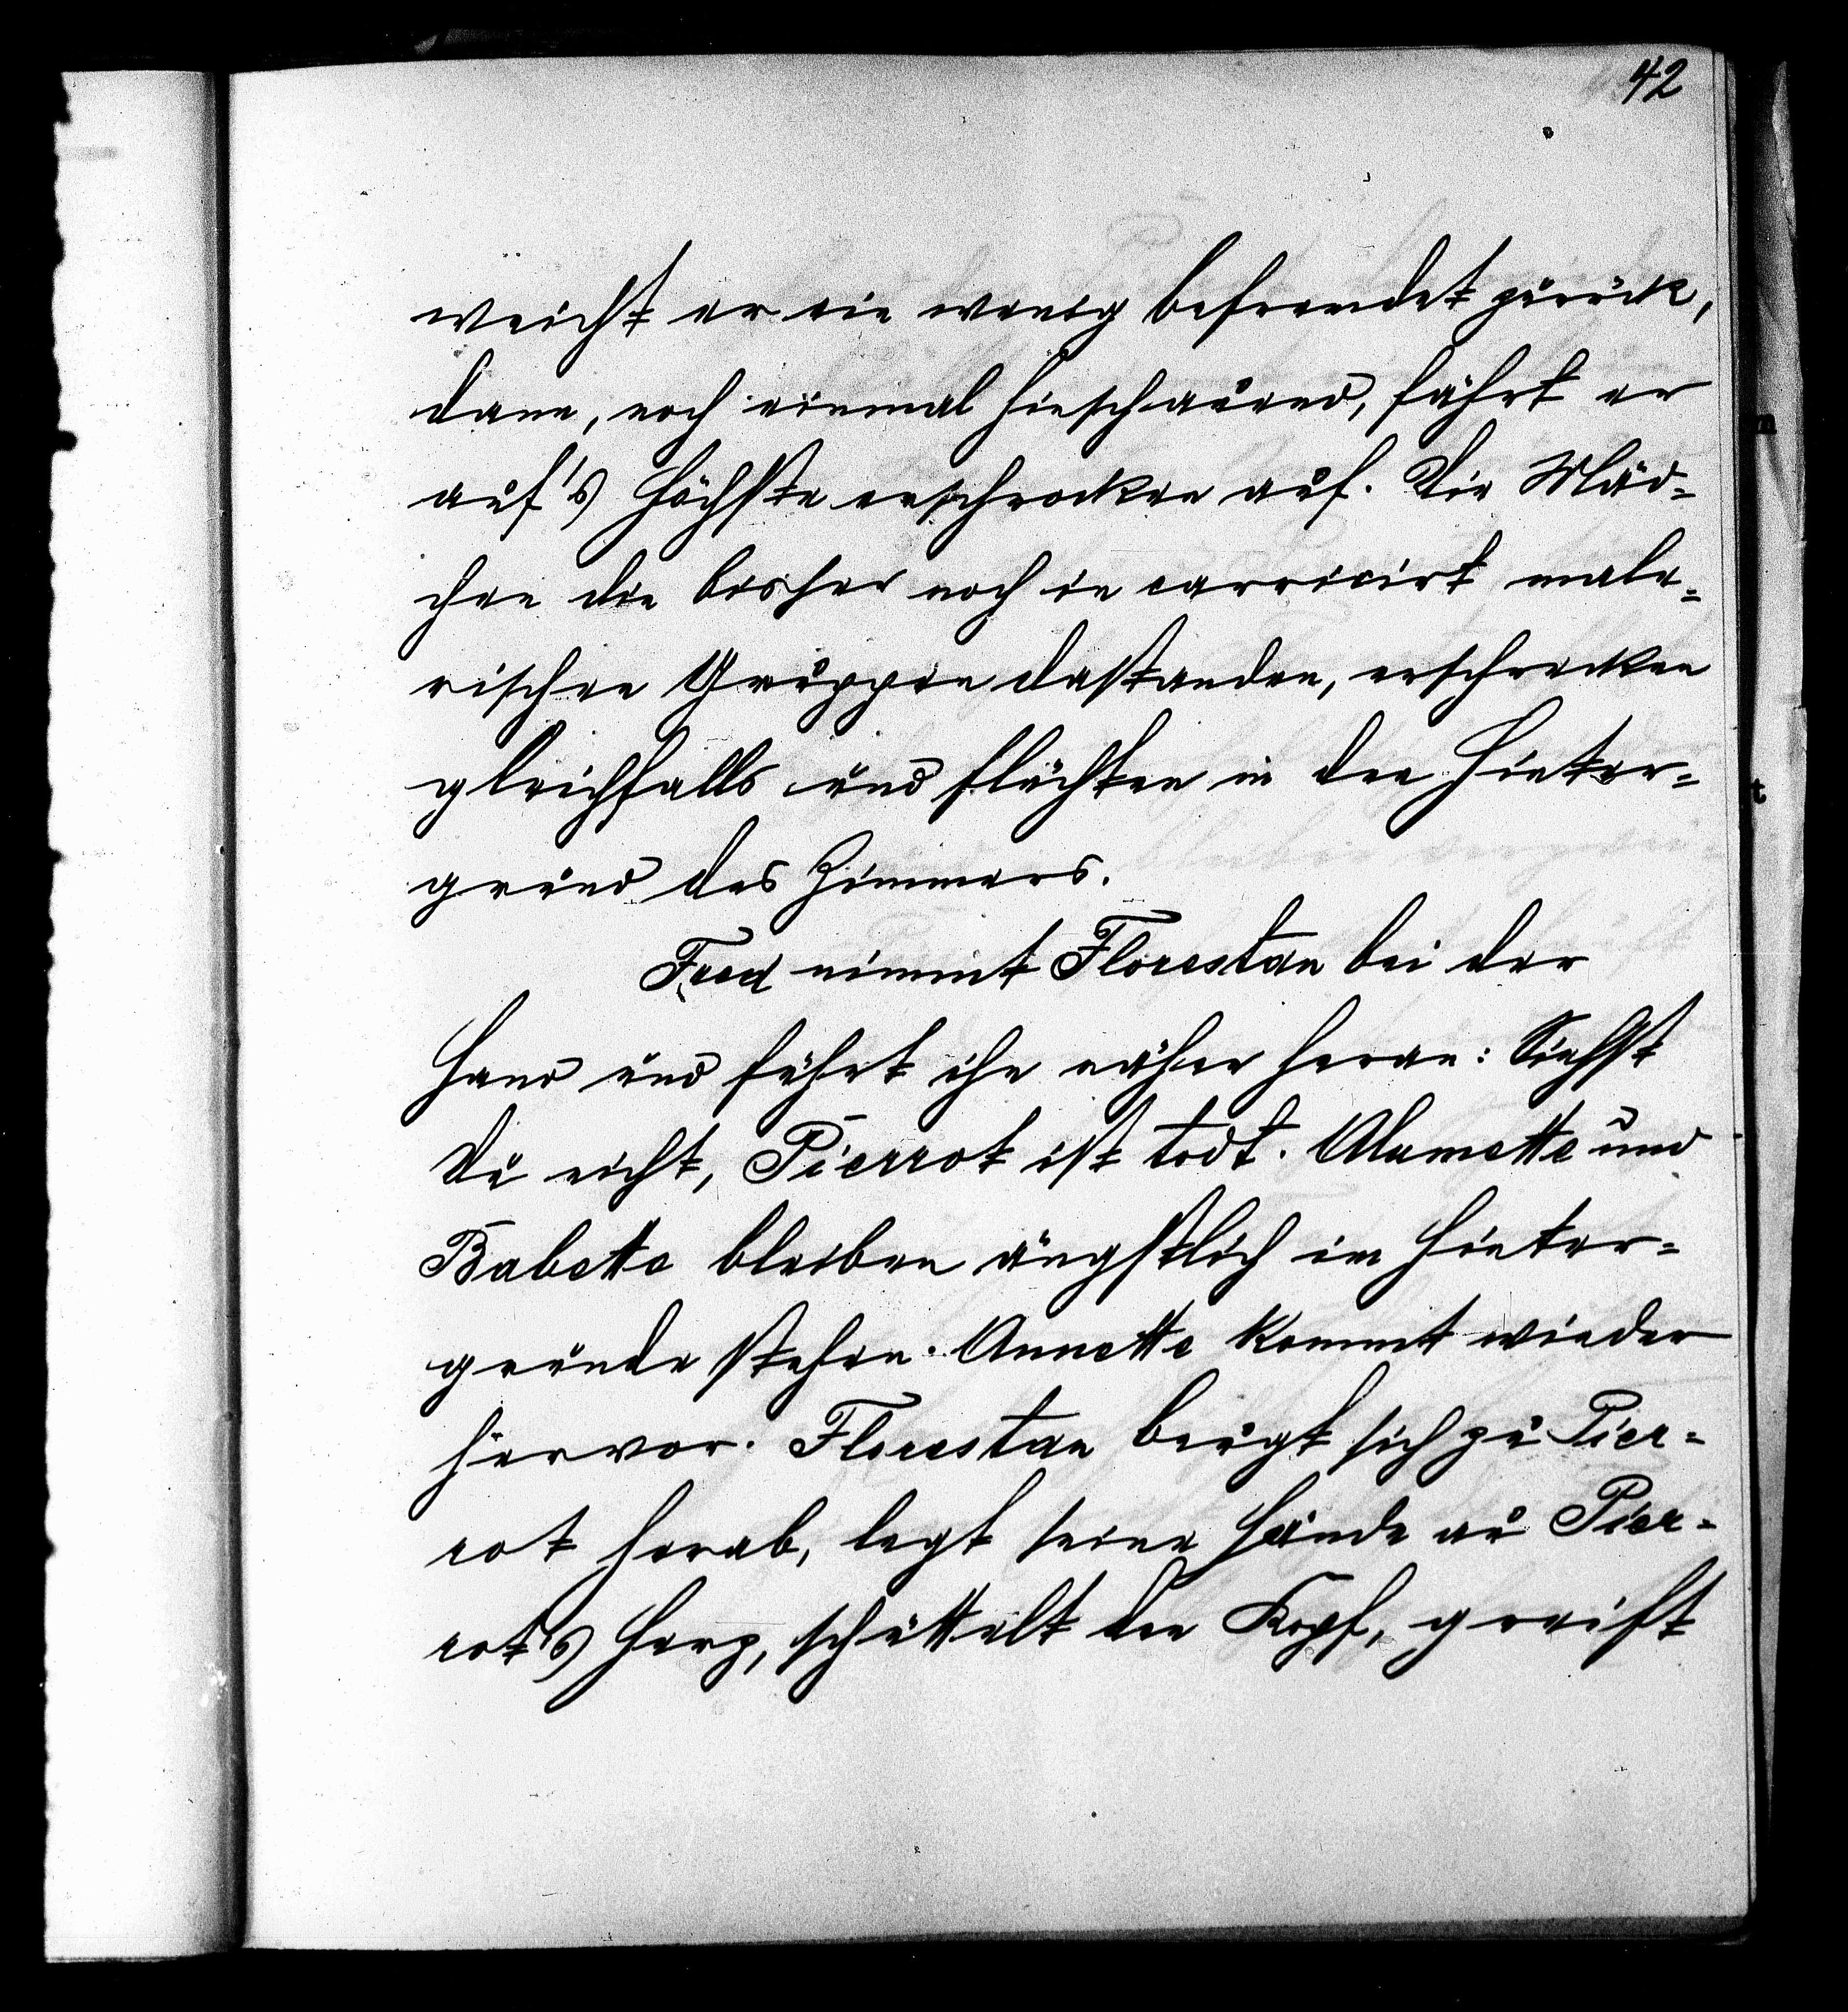 42
weicht er ein wenig befremdet zurück,
dann, noch einmal hinschauend, fährt er
auf's Höchste erschrocken auf. Die Mäd=
chen die bisher noch in carricirt male=
rischen Gruppen dastanden, erschrecken
gleichfalls und flüchten in den Hinter=
grund des Zimmers.
Fred nimmt Florestan bei der
Hand und führt ihn näher heran: Siehst
Du nicht, Pierrot ist todt. Alumette und
Babette bleiben ängstlich im Hinter=
grunde stehen. Annette kommt wieder
hervor. Florestan beugt sich zu Pier=
rot herab, legt seine Hände an Pier=
rot's Herz, schüttelt den Kopf, greift